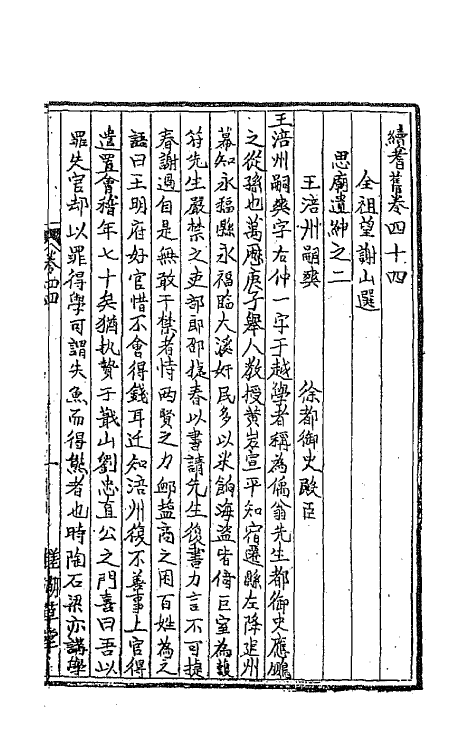 續耆舊卷四十四
全祖望謝山選
思廟遺紳之二
王涪州嗣奭 徐都御史殿臣
王涪州嗣奭字右仲一字于越學者稱為偶翁先生都御史應鵬
之從孫也萬曆庚子舉人教授黃岩宣平知宿遷縣左降建州
幕知永福縣永福臨大溪奸民多以米餉海盜皆倚巨室為護
符先生嚴禁之吏部郎邵捷春以書請先生復書力言不可捷
春謝過自是無敢干禁者恃兩賢之力卹鹽商之困百姓為之
語曰王明府好官惜不會得錢耳迁知涪州復不善事上官得
遣置會稽年七十矣猶執贄于蕺山劉忠直公之門喜曰吾以
罪失官却以罪得學可謂失魚而得熊者也時陶石梁亦講學
卷四四
一
湖草堂